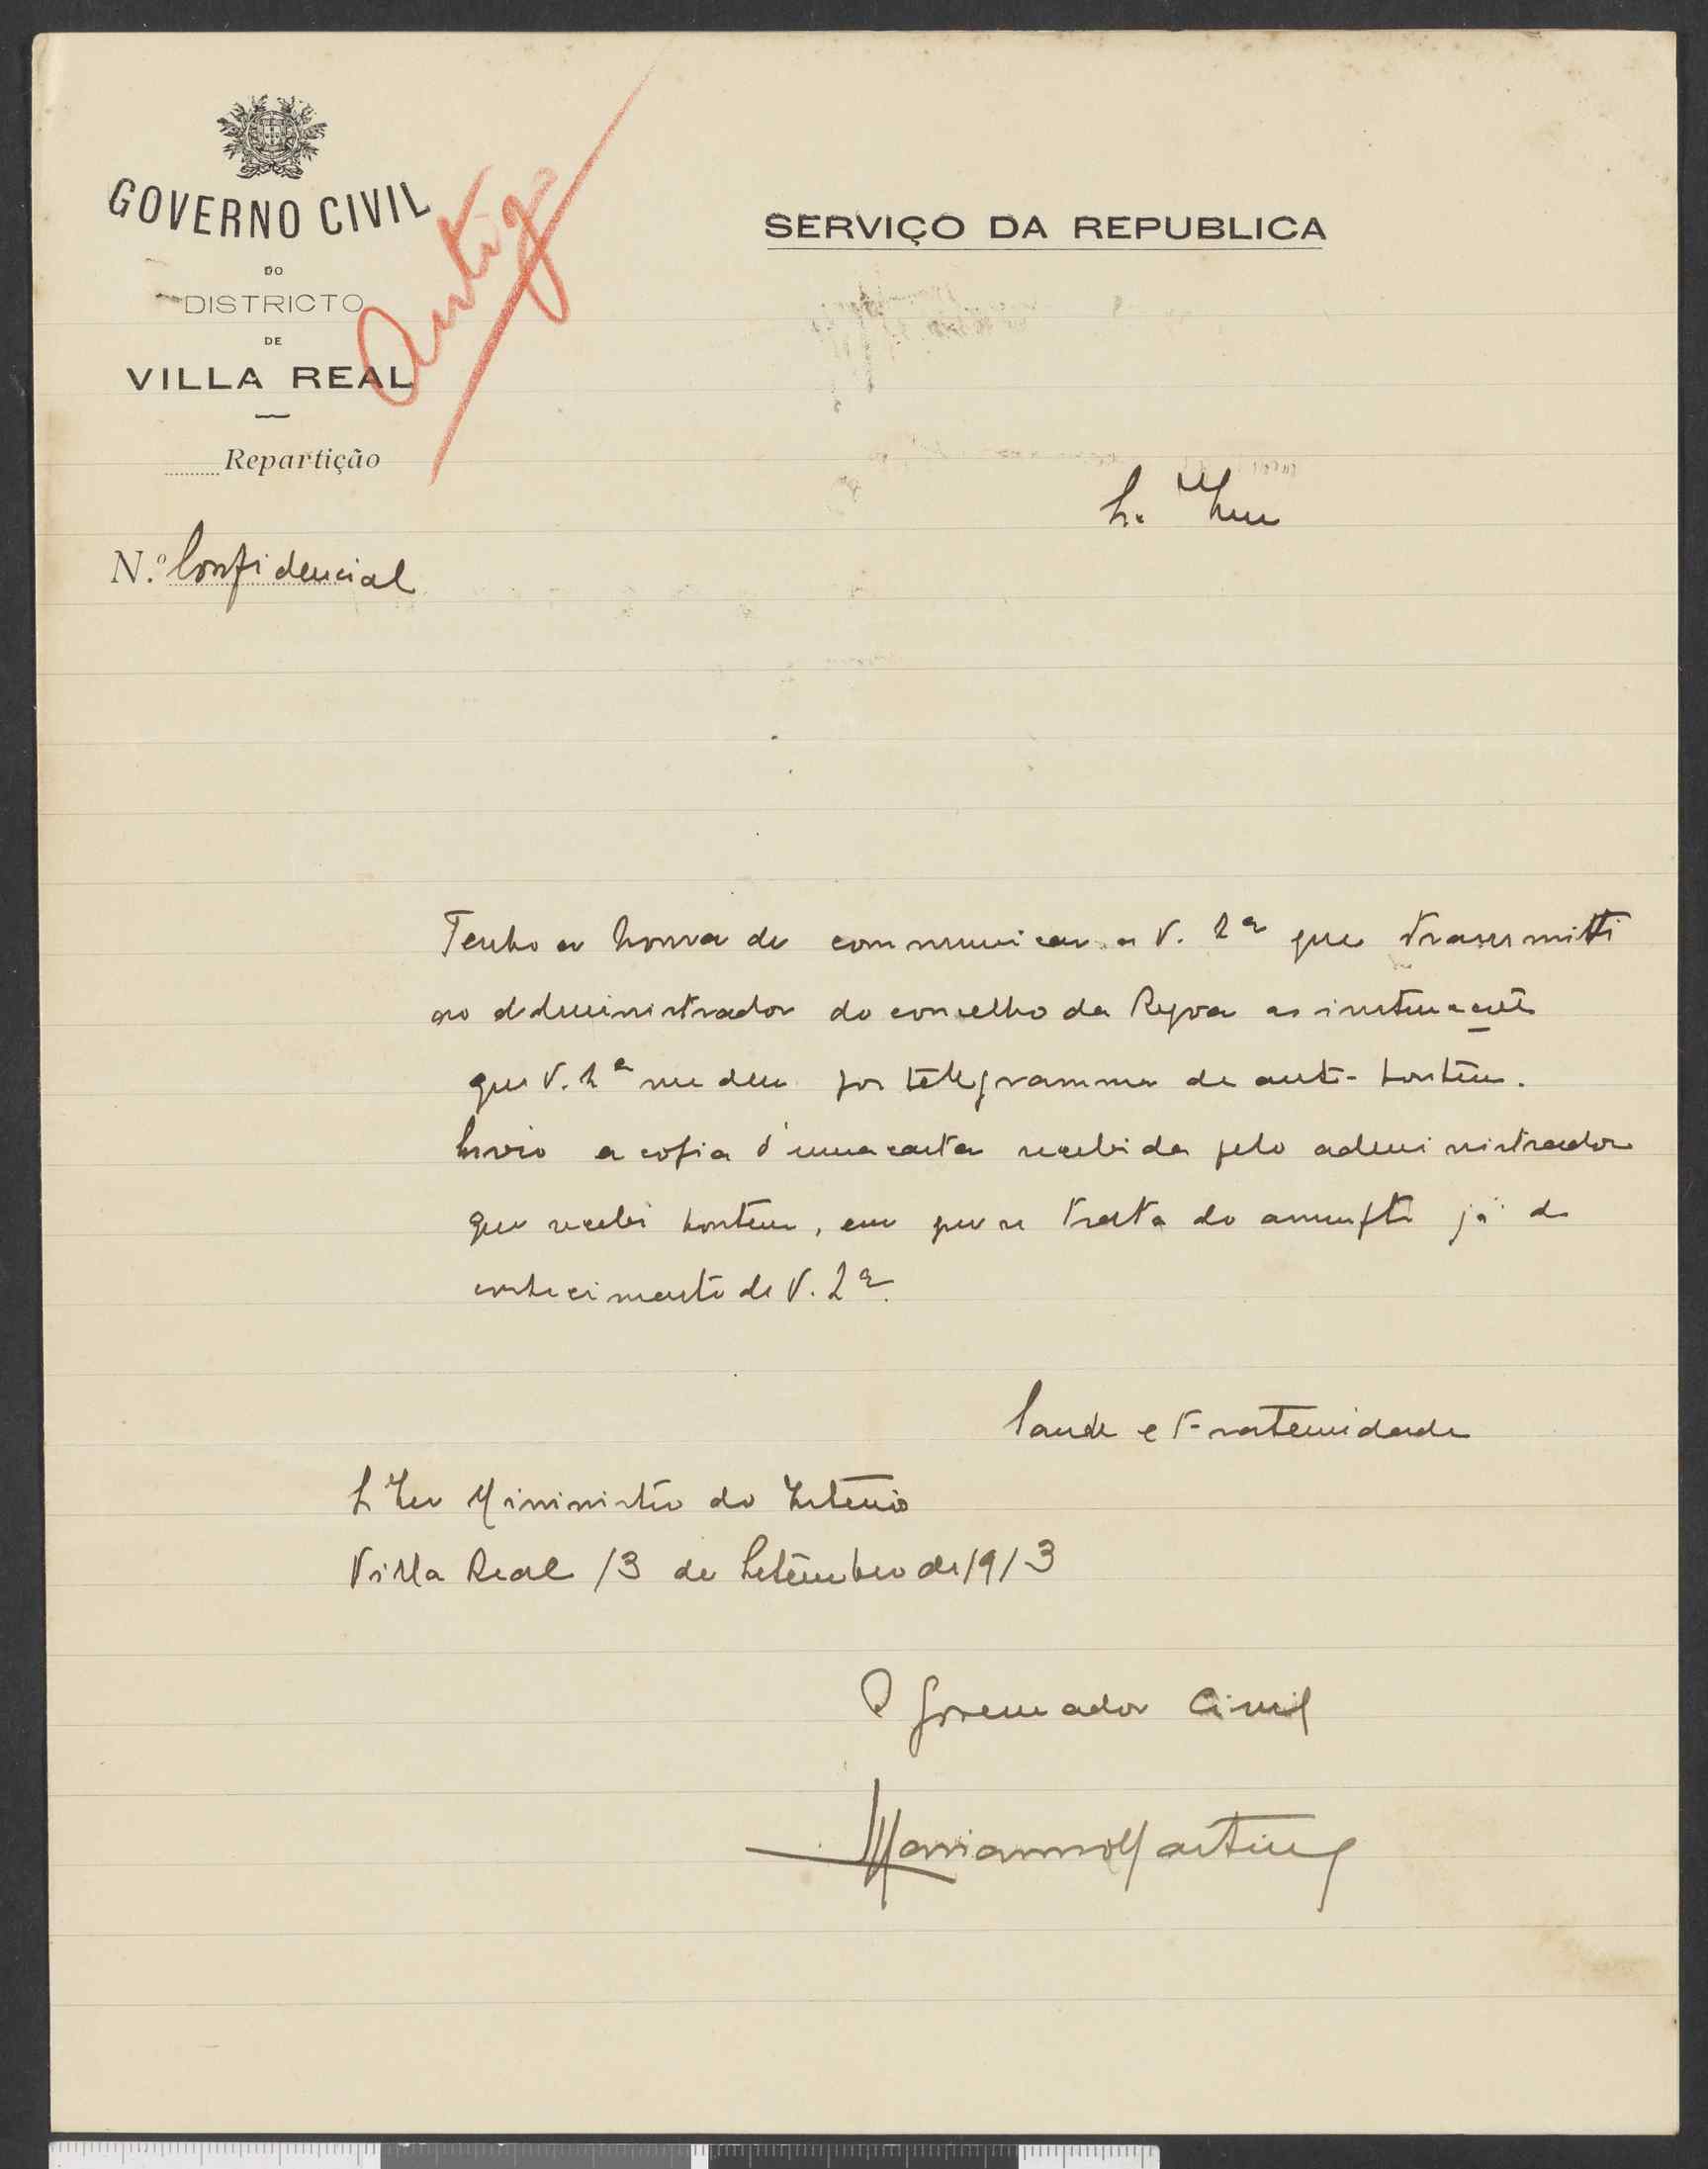 GOVERNO CIVIL
DO
DISTRICTO
DE
VILLA REAL
Repartição
Antigo
SERVIÇO DA REPUBLICA
N.º Confidencial
Tenho a honra de communicar a V. Eª que transmitti
ao administrador do concelho da Regoa as instrucções
que V. Eª me deu por telegramma de ante-hontem.
Envio a copia d'uma carta recebida pelo administrador
que recebi hontem, em que se trata do assumpto já do
conhecimento de V. Eª.
Saude e Fraternidade
Mininistro do Interior
Villa Real 13 de Setembro de 1913
O Governador Civil
Marianno Martins